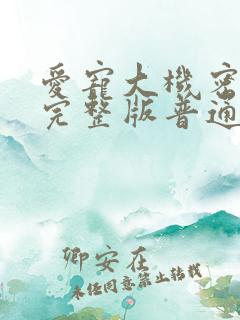 愛寵大機密
完整版普通
卿安在
未经同意禁止转载